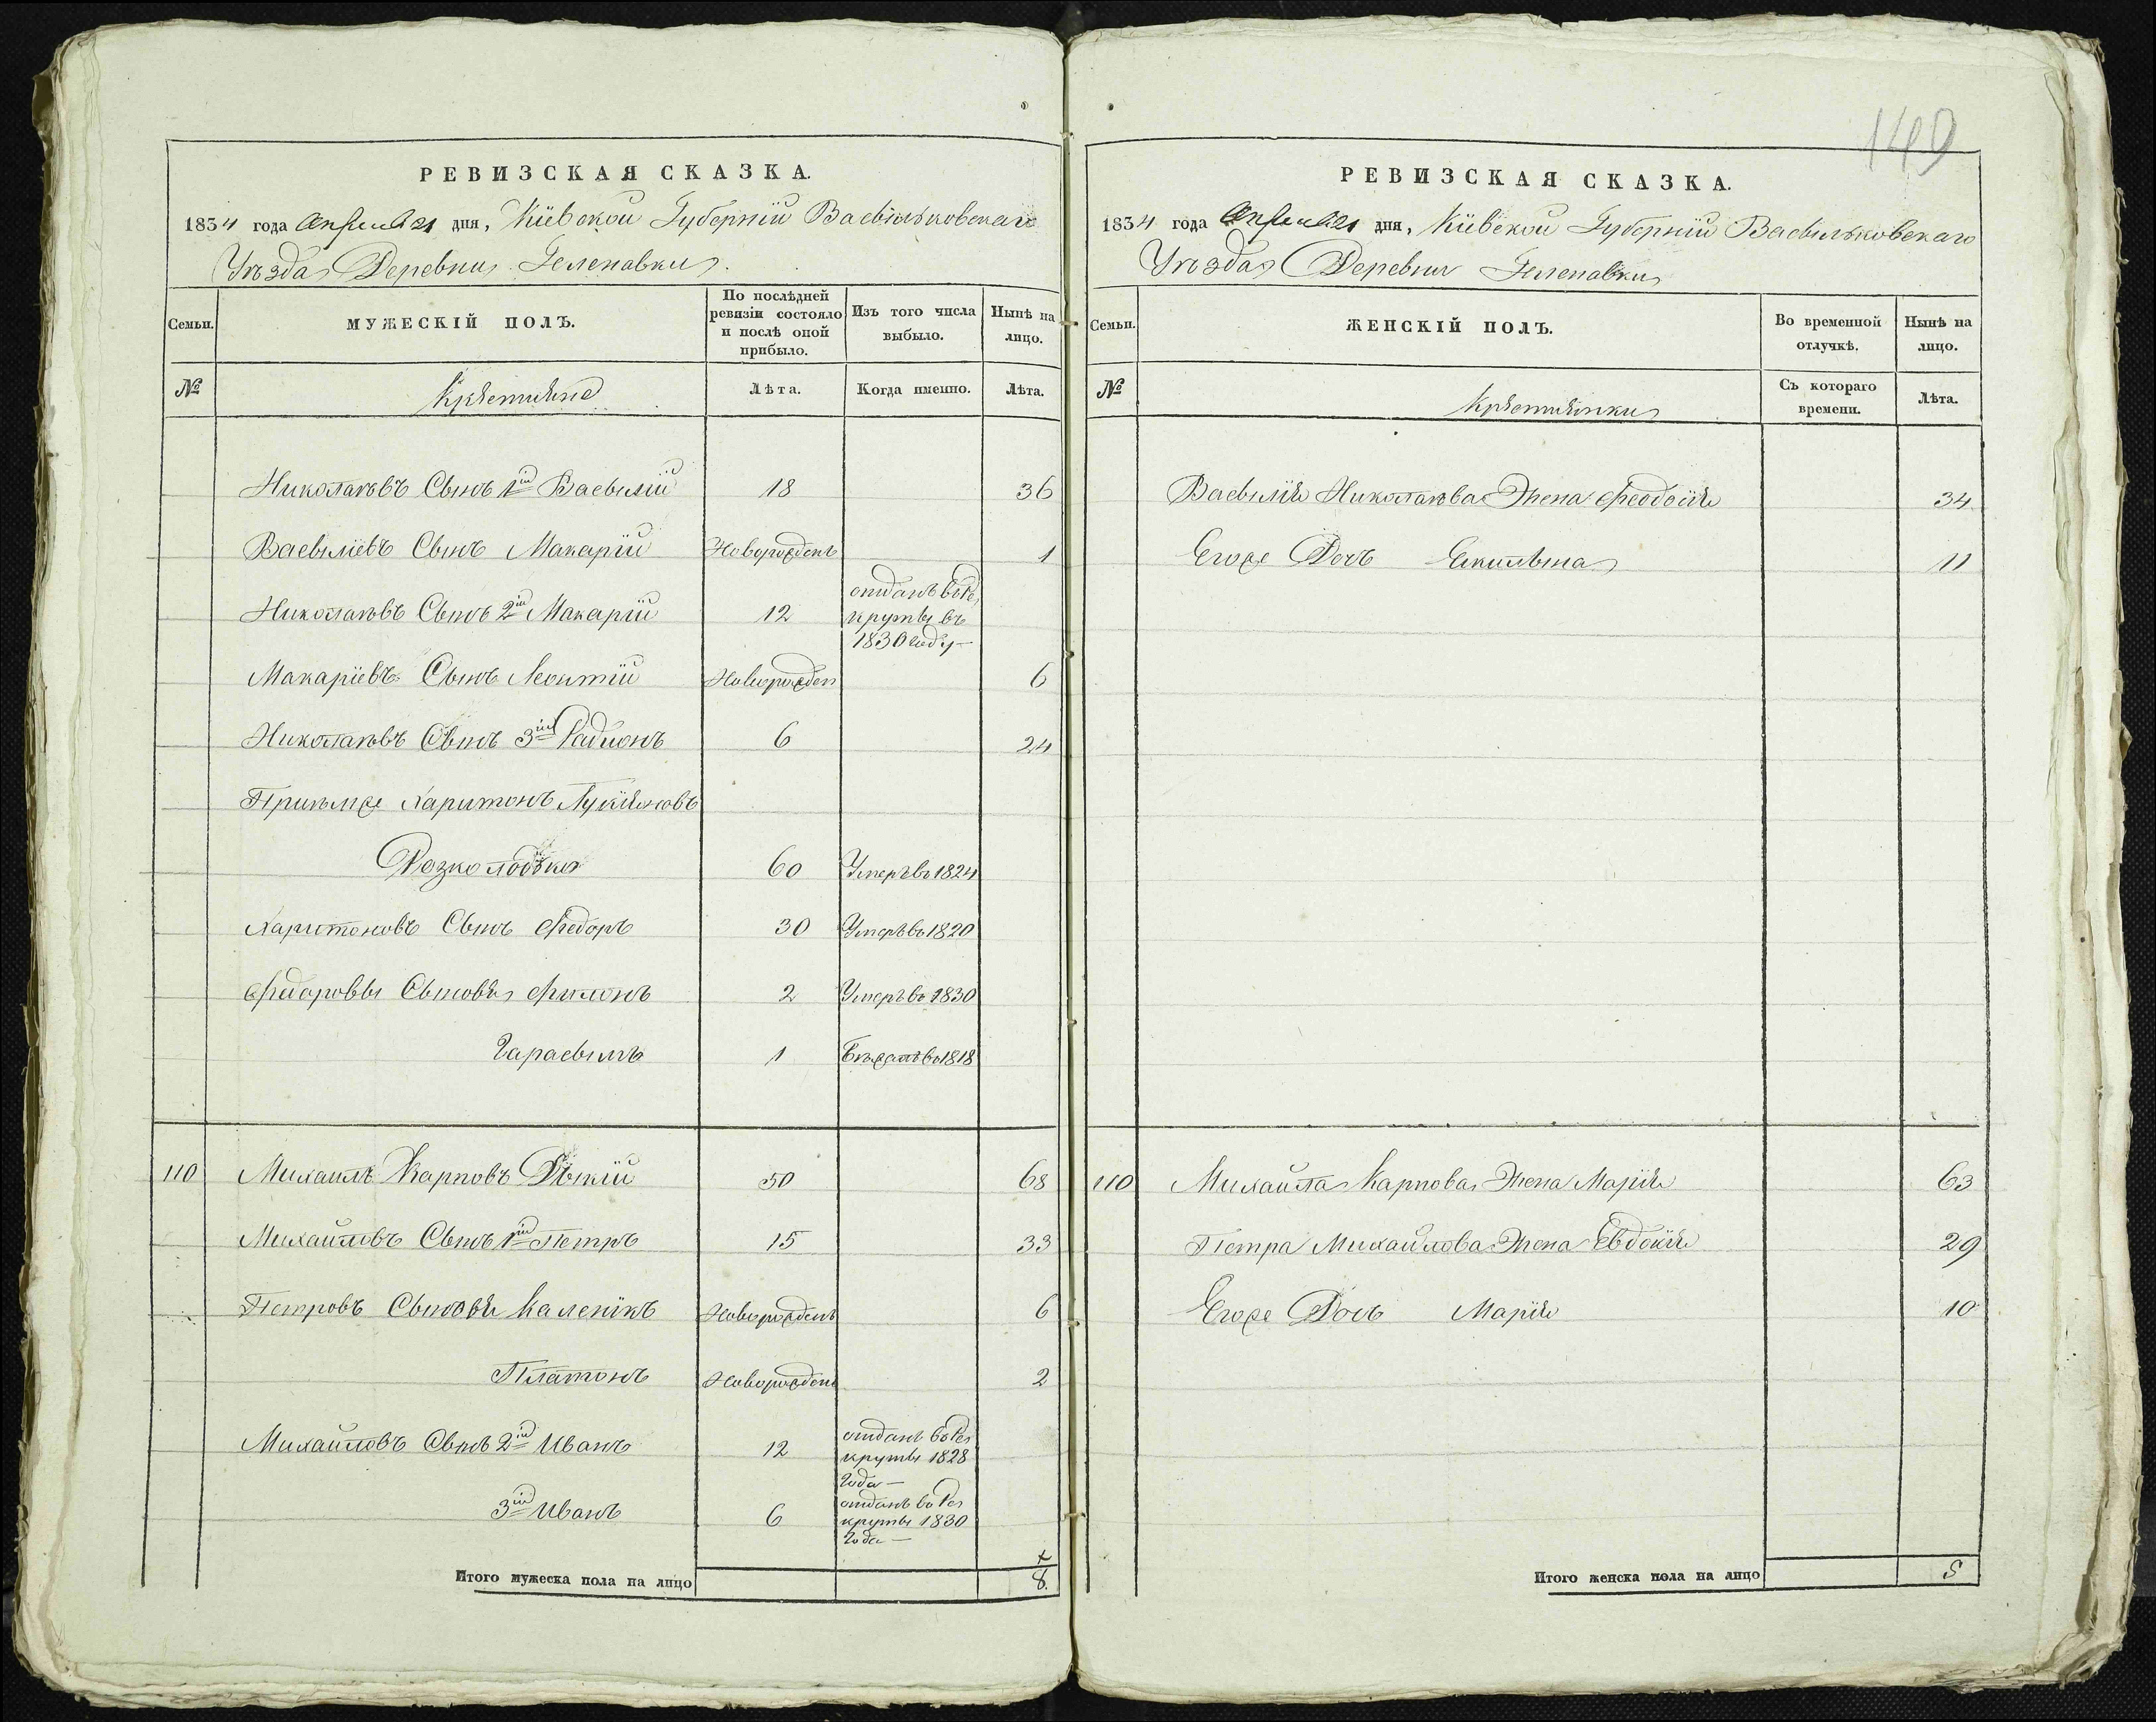 РЕВИЗСКАЯ СКАЗКА.
1834 года Апреля 21 дня, Кіевской Губерніи Васильковскаго
Уѣзда Деревни Геленавки
Семьи.
МУЖЕСКІЙ ПОЛЪ.
По послѣдней
ревизіи состояло
и послѣ оной
прибыло.
Изъ того числа
выбыло.
Нынѣ на
лицо.
№
Крѣстияне
Лѣта.
Когда именно.
Лѣта.
Николаѣвъ Сынъ 1ій Васылій 18 36
Васылiевъ Сынъ Макарій Новорожденъ 1
Николаѣвъ Сынъ 2ій Макарій 12 отданъ въ Ре
круты въ
1830 году
Макаріевъ Сынъ Леонтій Новорожден 6
Николаѣвъ Сынъ 3ій Радионъ 6 24
Приѣмже Харитонъ Лукіяновъ
Розколодька 60 Умеръ въ 1824
Харитоновъ Сынъ Федоръ 30 Умеръ въ 1820
Федоровы Сыновья Филонъ 2 Умеръ въ 1830
Гарасымъ 1 Бѣжалъ въ 1818
110 Михаилъ Карповъ Дыкій 50 68
Михайловъ Сынъ 1ій Петръ 15 33
Петровъ Сыновья Каленікъ Новорожденъ 6
Платонъ Новорожденъ 2
Михайловъ Сынъ 2ій Иванъ 12 отданъ въ Ре
круты 1828
Года
3ій Иванъ 6 отданъ въ Ре
круты 1830
Года
Итого мужеска пола на лицо 8.
140
РЕВИЗСКАЯ СКАЗКА.
1834 года Апреля 21 дня, Кіевской Губерніи Васильковскаго
Уѣзда Деревни Геленавки
Семьи.
ЖЕНСКІЙ ПОЛЪ.
Во временной
отлучкѣ.
Нынѣ на
лицо.
№
Крѣстиянки
Съ котораго
времени.
Лѣта.
Васылія Николаѣва Жена Феодосія 34
Егоже Дочь Екилына 11
110 Михайла Карпова Жена Марія 63
Петра Михайлова Жена Евдокія 29
Егоже Дочь Марія 10
Итого женска пола на лицо 5